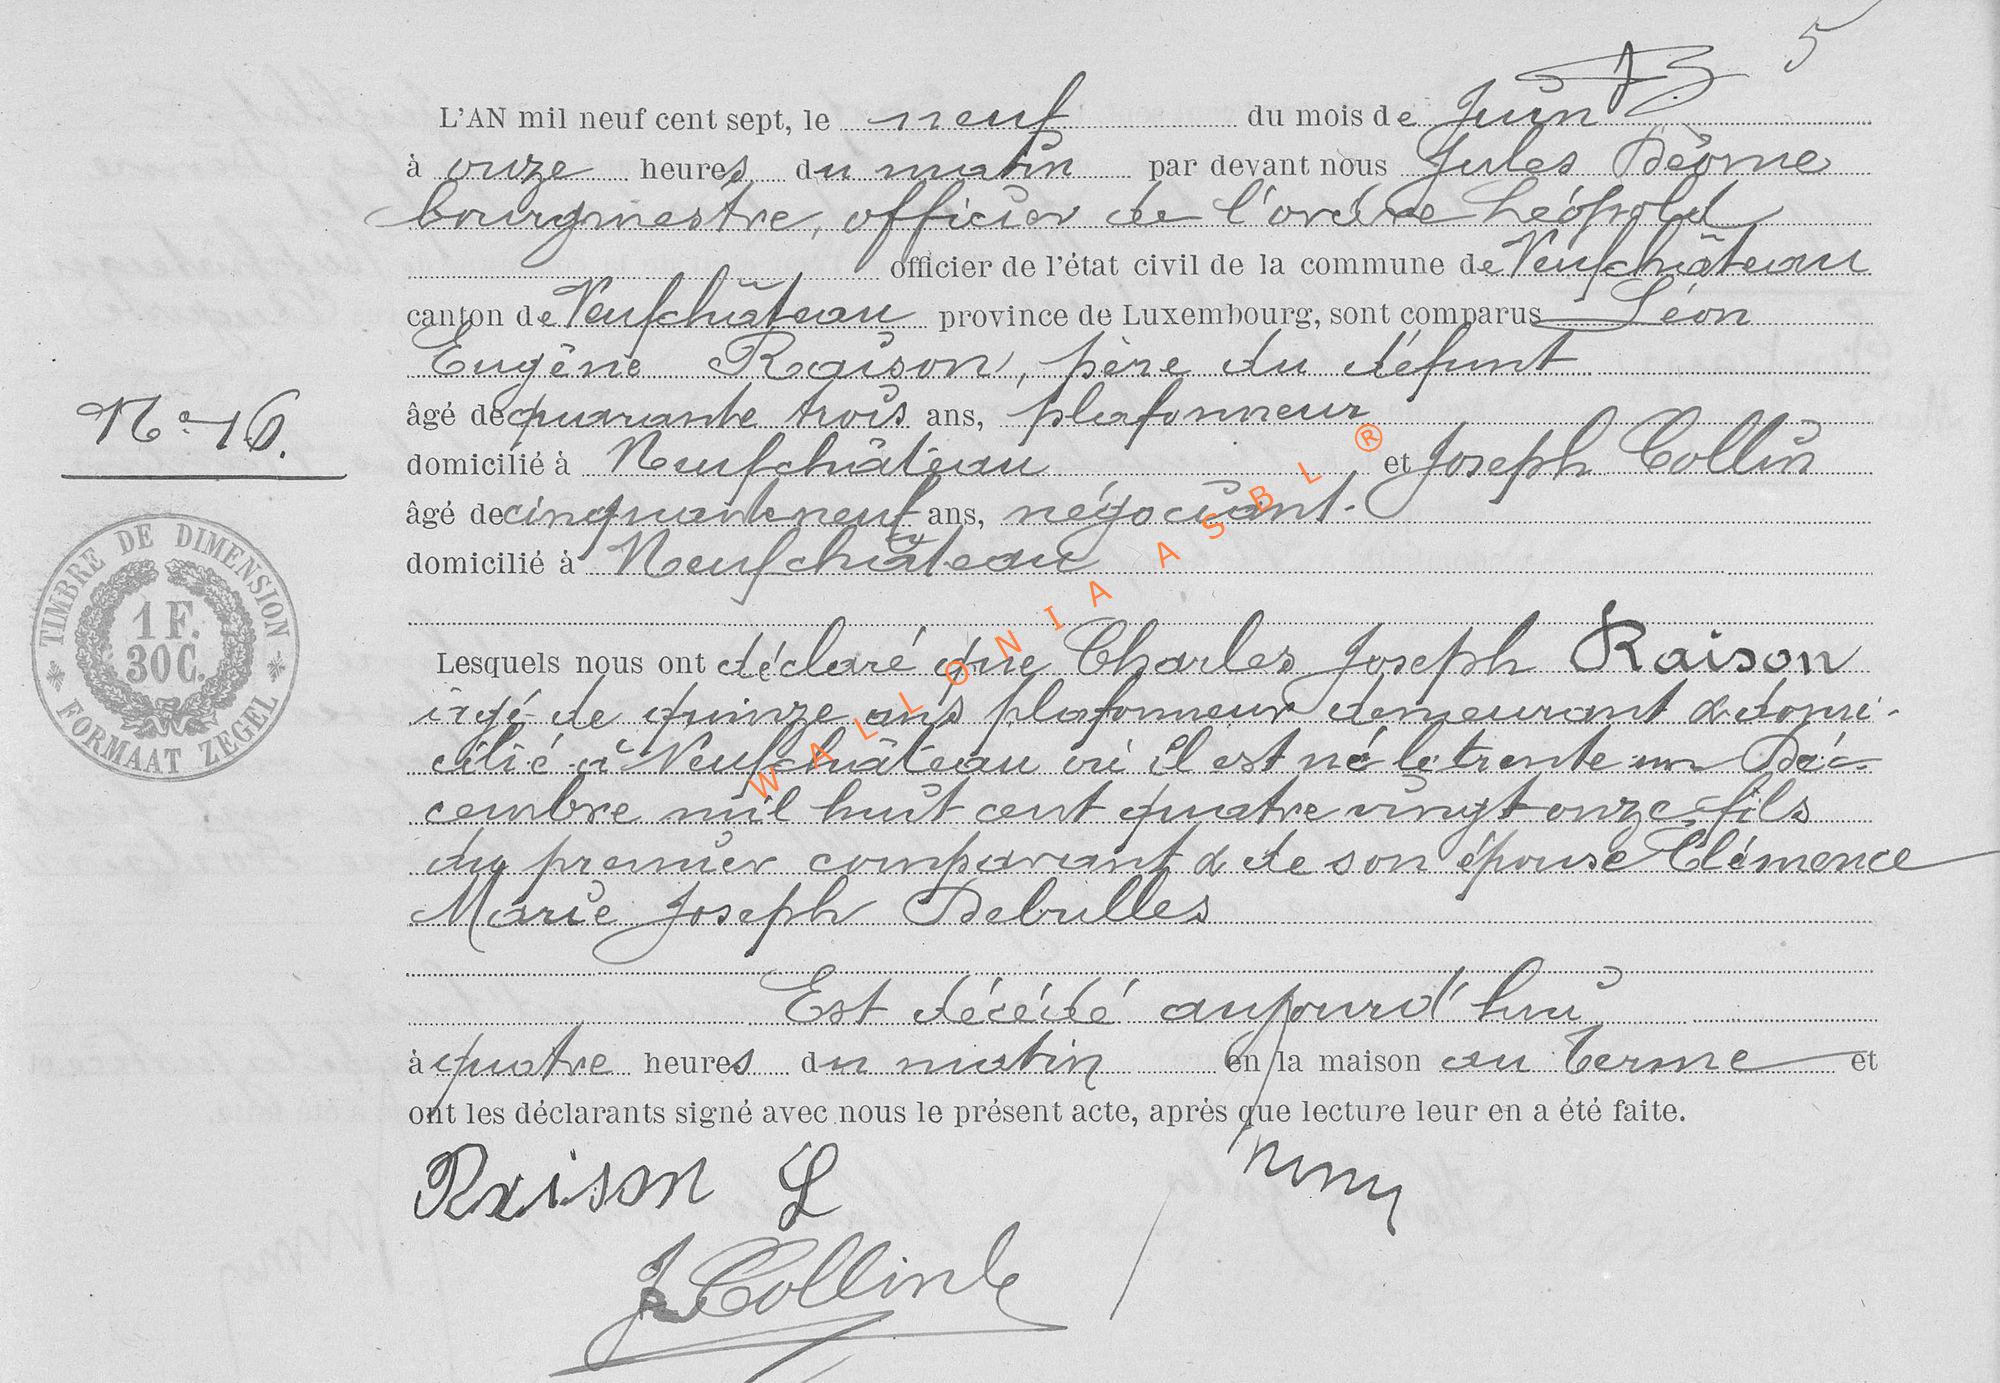 5
L'AN mil neuf cent sept, le neuf du mois de Juin
à onze heures du matin par devant nous Jules Déome
bourgmestre, officier de l'ordre Léopold
officier de l'état civil de la commune de Neufchâteau
canton de Neufchâteau province de Luxembourg, sont comparus Léon
Eugène Raison, père du défunt
âgé de quarante trois ans, plafonneur
domicilié à Neufchâteau et Joseph Collin
âgé de cinquante neuf ans, négociant.
domicilié à Neufchâteau
Lesquels nous ont déclaré que Charles Joseph Raison
âgé de quinze ans plafonneur demeurant & domi-
cilié à Neufchâteau où il est né le trente un Dé-
cembre mil huit cent quatre vingt onze fils
du premier comparant & de son épouse Clémence
Marie Joseph Debulles
Est décédé aujourd'hui
à quatre heures du matin en la maison au Terme et
ont les déclarants signé avec nous le présent acte, après que lecture leur en a été faite.
Raison L
J Collin
No 16.
TIMBRE DE DIMENSION
1 F.
30 C.
FORMAAT ZEGEL
WALLONIA ASBL ®